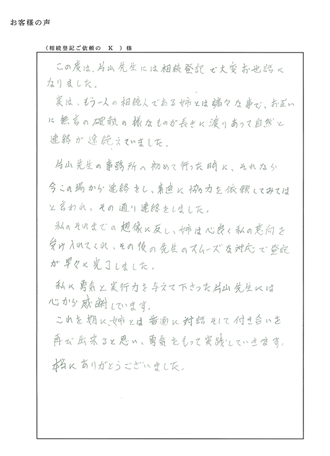 お客様の声
(相続登記ご依頼の K )様
この度は、片山先生には相続登記で大変お世話に
なりました。
実は、もう一人の相続人である姉とは諸々な事で、お互い
に無言の確執の様なものが長きに渡りあって自然と
連絡が途絶えていました。
片山先生の事務所の初めて行った時に、それなら
今この場から連絡をし、素直に協力を依頼してみては
と言われ、その通り連絡をしました。
私のそれまでの想像に反し、姉は心良く私の意向を
受け入れてくれ、その後の先生のスムーズな対応で登記
が早々に完了しました。
私に勇気と実行力を与えて下さった片山先生には
心から感謝しています。
これを期に、姉とは皆面に対話そして付き合いを
再び出来ると思い、勇気をもって実践していきます。
本当にありがとうございました。